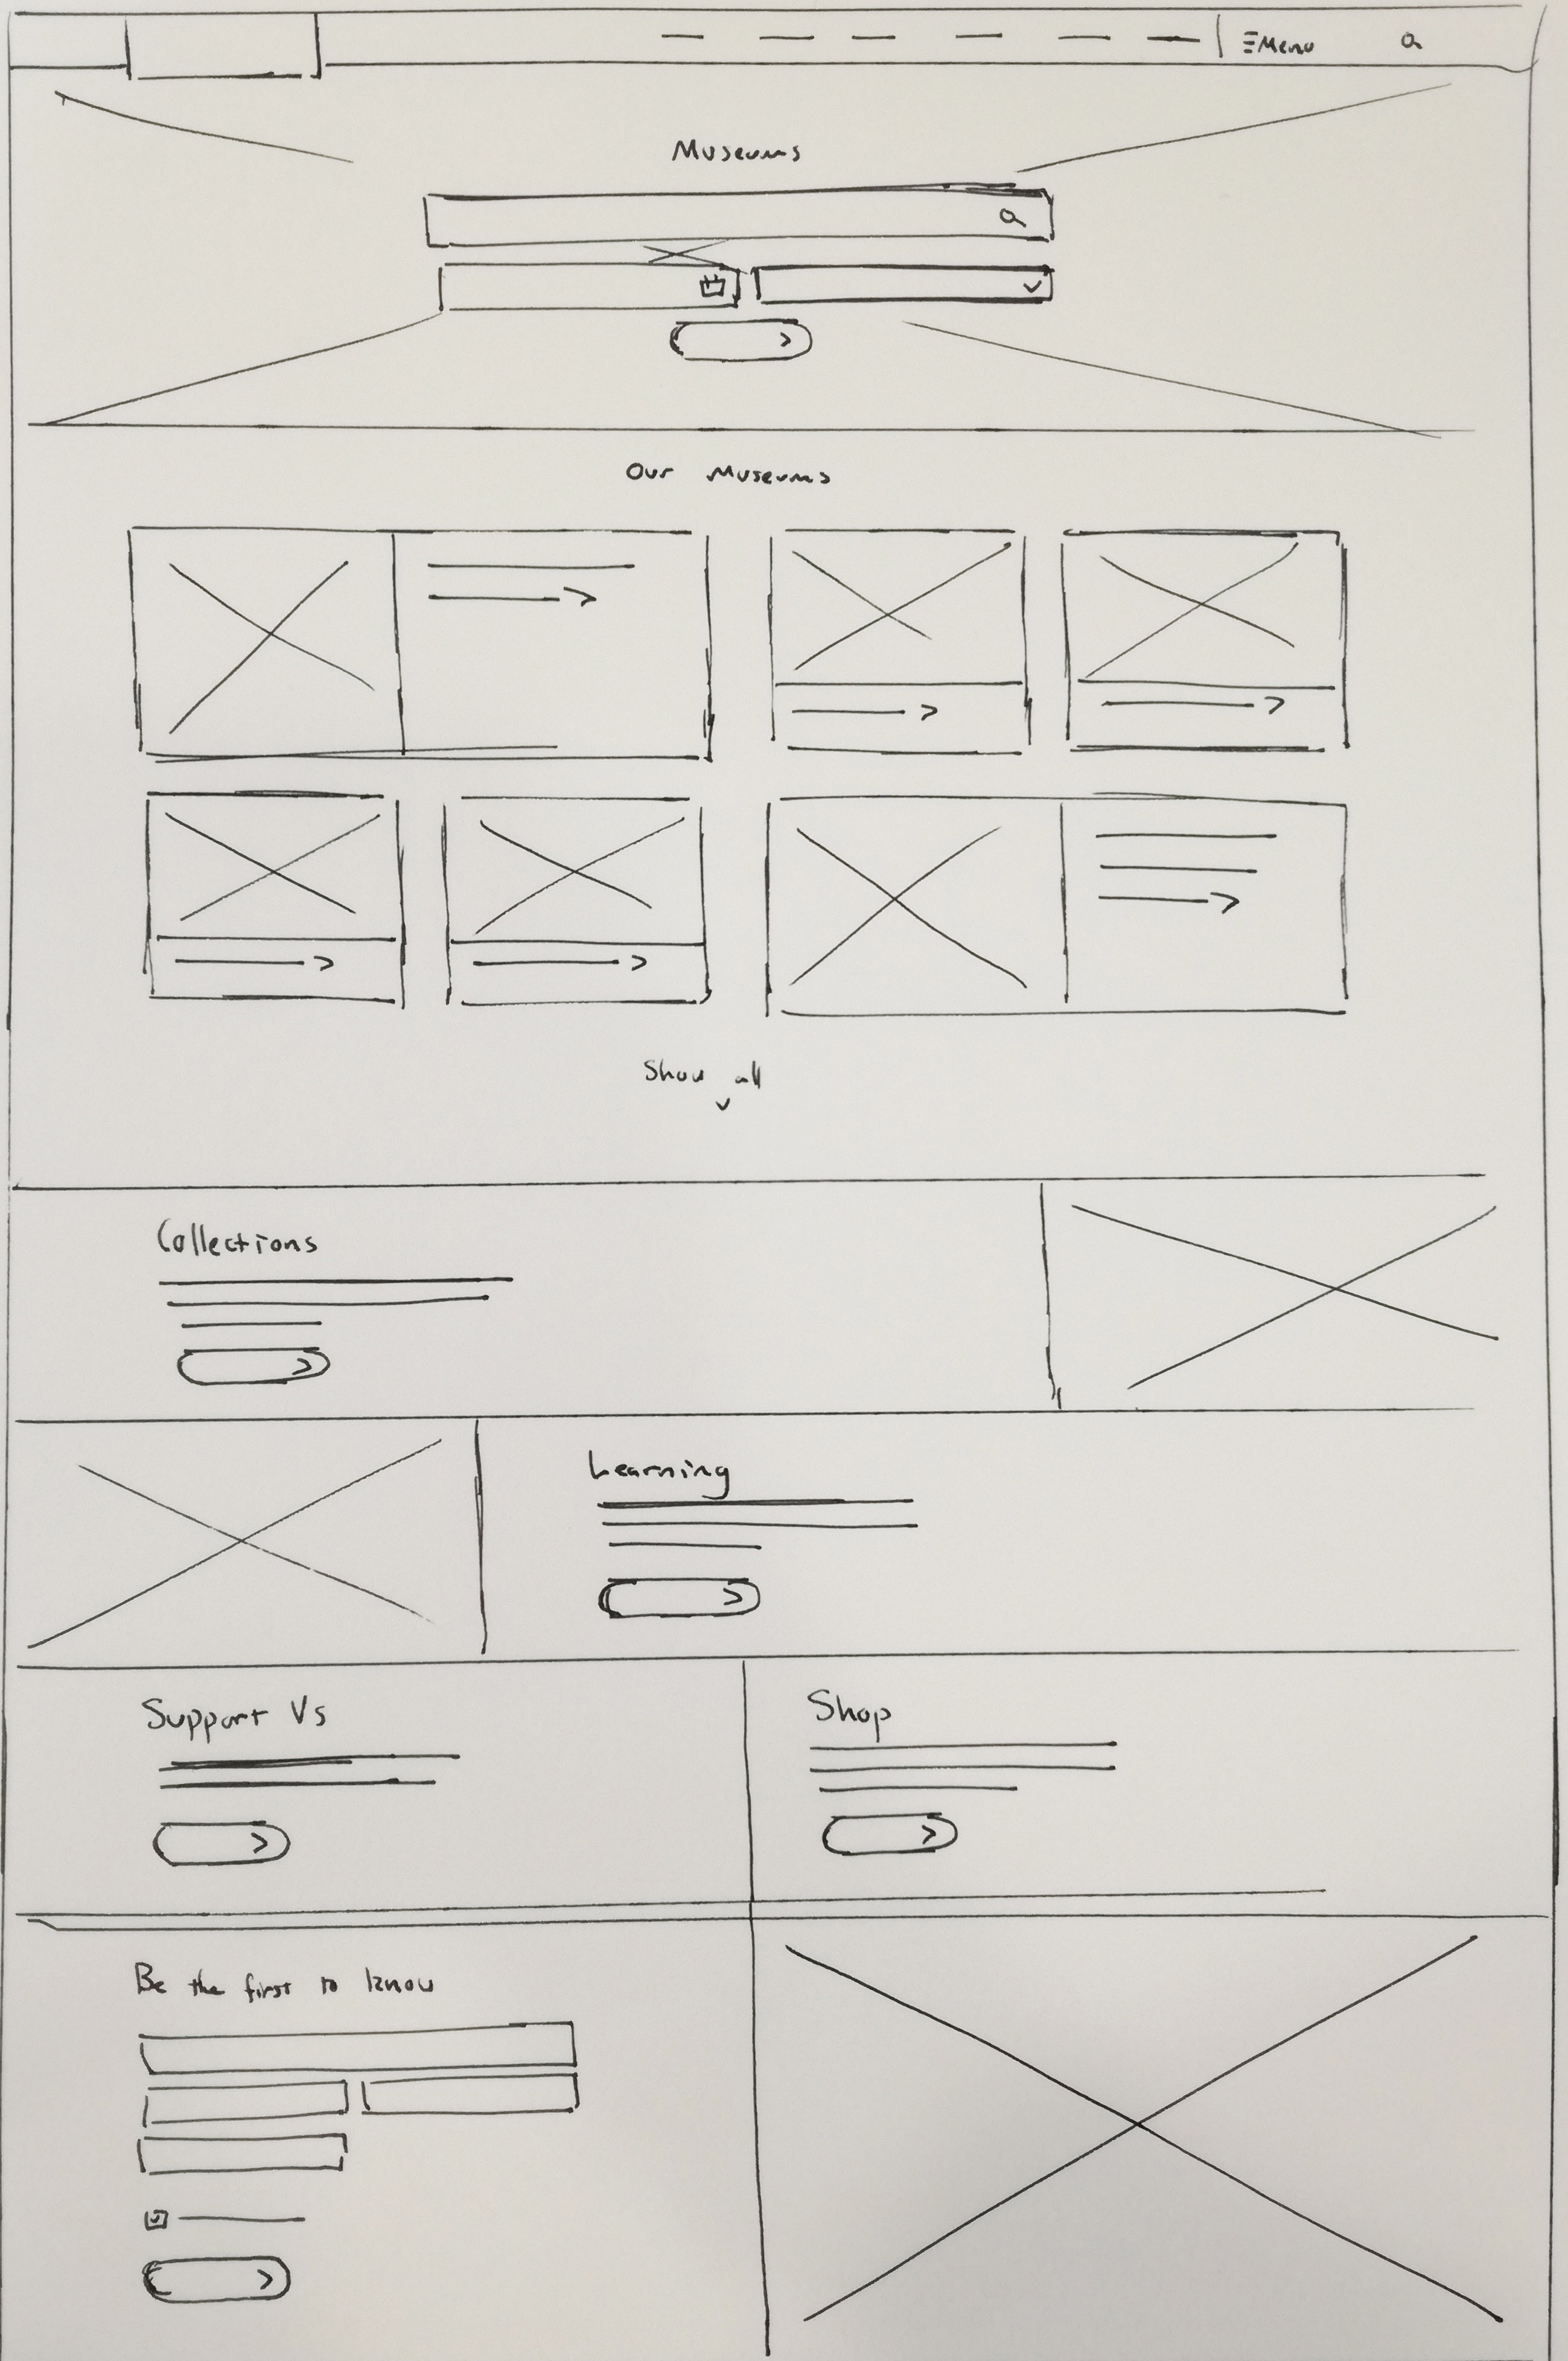 Menu
Museums
Our Museums
Show all
Collections
Learning
Support Us
Shop
Be the first to know